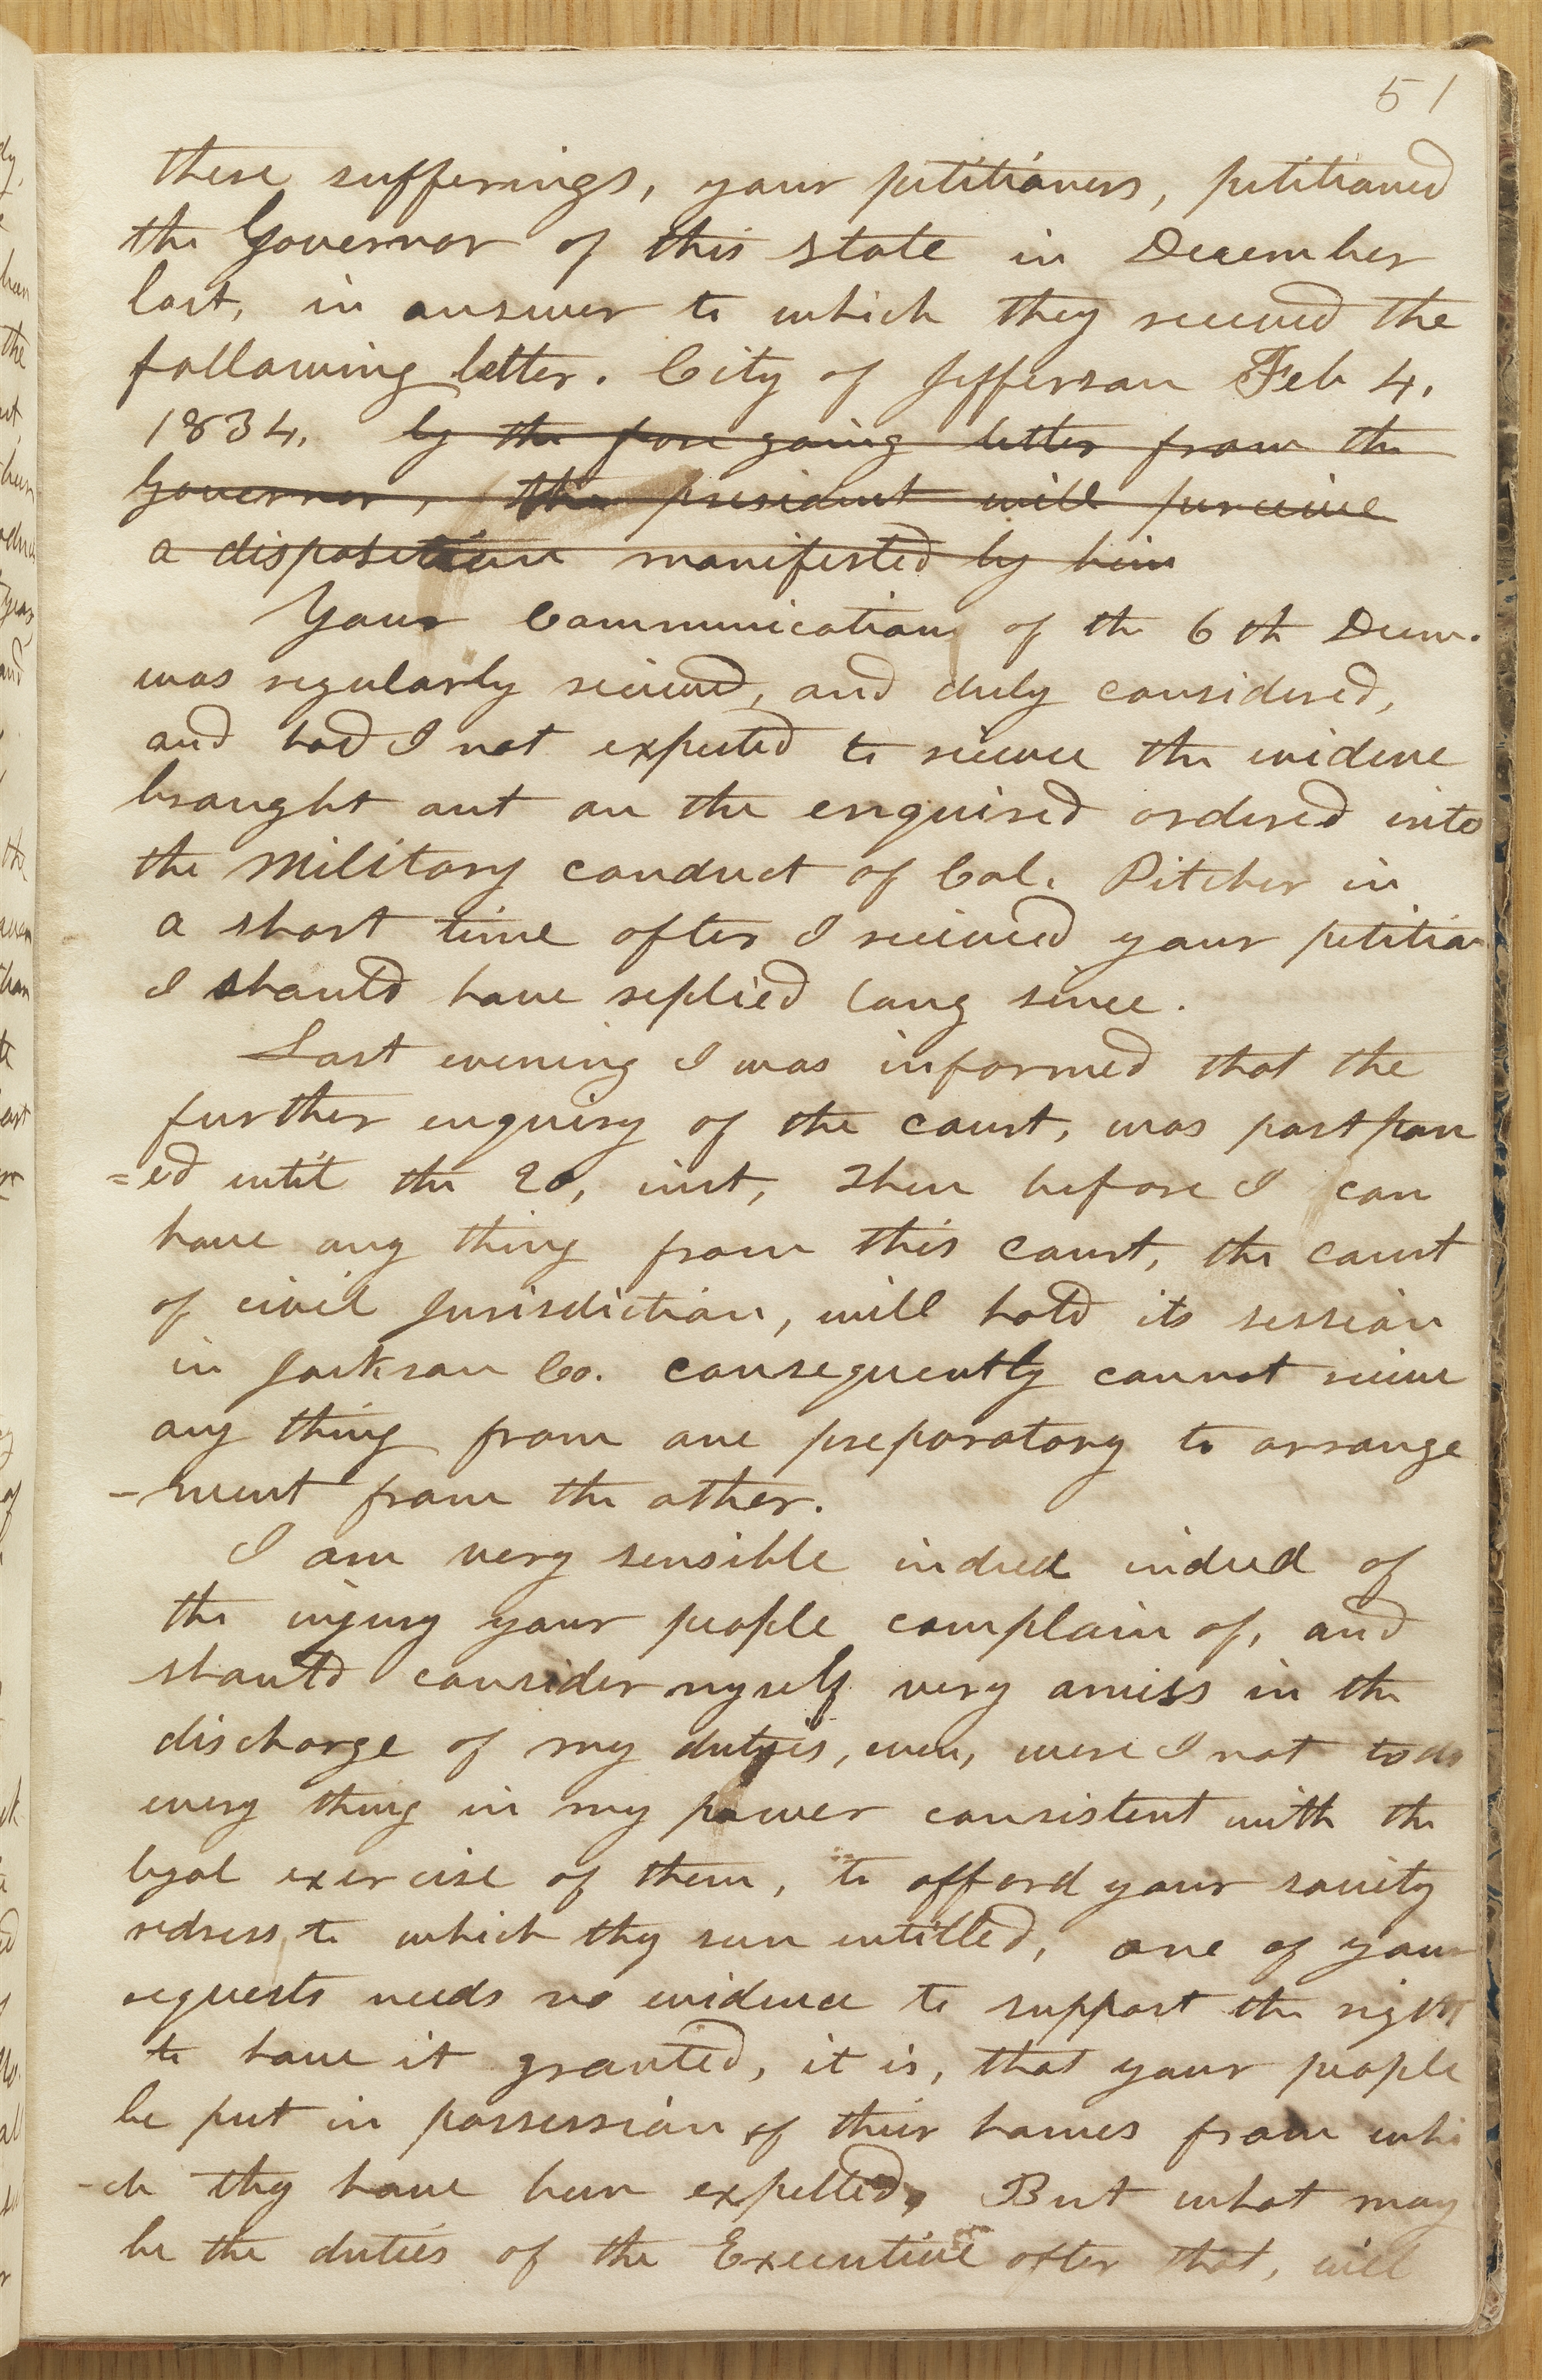 51
these sufferings, your petitioners, petitioned
the Governor of this state in December
last, in answer to which they received the
following letter. City of Jefferson Feb 4,
1834, by the fore going letter from the
Governor, the presidant will perceive
a disposition manifested by him
Your Communications of the 6th Decm.
was regularly recieved, and duly considered,
and had I not expected to recieve the evidence
braught out on the enquired ordered into
the Military conduct of Col. Pitcher in
a short time after I recieved your petition
I should have replied long since.
Last evening I was informed that the
further enquiry of the court, was postpon
=ed until the 20, inst, Then before I can
have any thing from this court, the court
of civil Jurisdiction, will hold its session
in Jackson Co. consequently cannot recieve
any thing from one preparatory to arrange
-ment from the other.
I am very sensible indeed indeed of
the injury your people complain of, and
should consider myself very amiss in the
discharge of my duties, even, were I not to do
every thing in my power consistent with the
legal exercise of them, to afford your society
redress, to which they seem entitled, one of your
requests needs no evidence to support the right
to have it granted, it is, that your people
be put in possession of their homes from whi
-ch they have been expelled, But what may
be the duties of the Executive after that, will